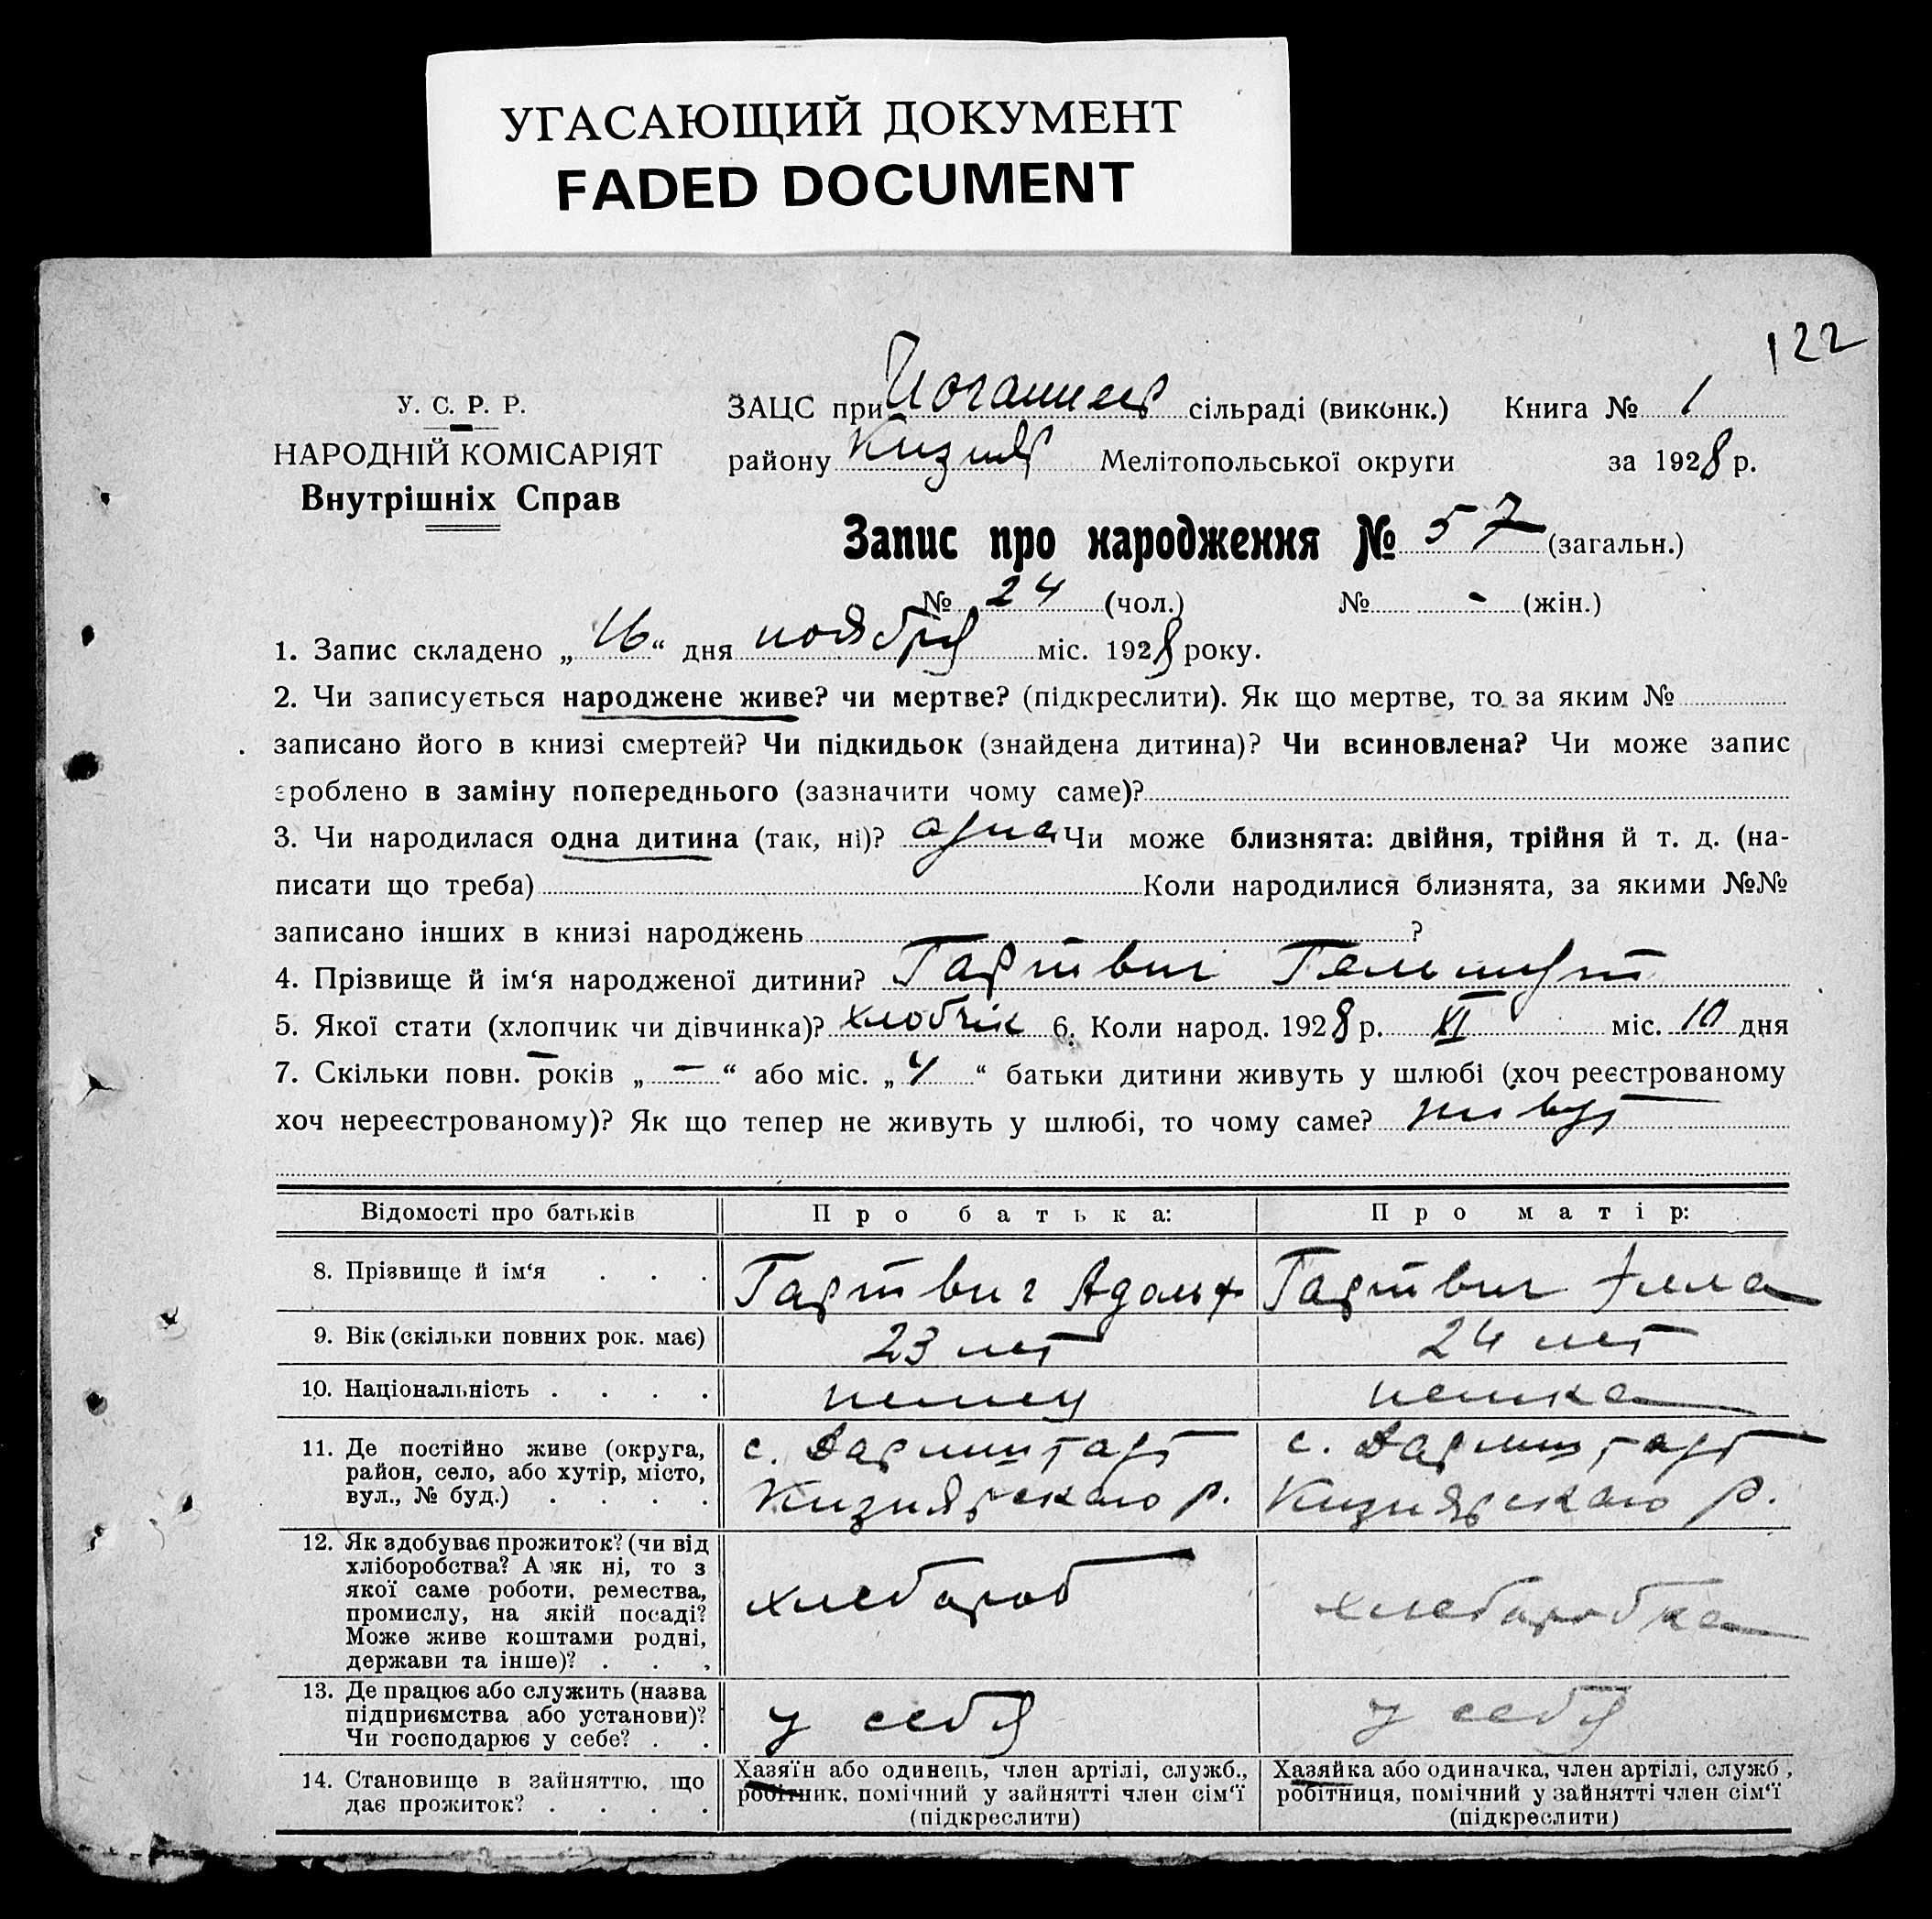 УГАСАЮЩИЙ ДОКУМЕНТ
FADED DOCUMENT
122
У. С. Р. Р.
НАРОДНІЙ КОМІСАРІЯТ
Внутрішніх Справ
ЗАЦС при сільраді (виконк.) Книга № 1
району Кизияр Мелітопольської округи за 1928 р.
Запис про народження № 57 (загальн.)
№ 24 (чол.) № - (жін.)
1. Запис складено „16“ дня ноября міс. 1928 року.
2. Чи записується народжене живе? чи мертве? (підкреслити). Як що мертве, то за яким №
записано його в книзі смертей? Чи підкидьок (знайдена дитина)? Чи всиновлена? Чи може запис
зроблено в заміну попереднього (зазначити чому саме)?
3. Чи народилася одна дитина (так, ні)? одна Чи може близнята: двійня, трійня й т. д. (на-
писати що треба) Коли народилися близнята, за якими №№
записано інших в книзі народжень ?
4. Прізвище й ім‘я народженої дитини? Гартвиг Гельмут
5. Якої стати (хлопчик чи дівчинка)? хлобчік 6. Коли народ. 1928 р. XI міс. 10 дня
7. Скільки повн. років „—“ або міс. „4“ батьки дитини живуть у шлюбі (хоч реєстрованому
хоч нереєстрованому)? Як що тепер не живуть у шлюбі, то чому саме? живут
Відомості про батьків Про батька: Про матір:
8. Прізвище й ім‘я . . . Гартвиг Адольф Гартвиг
9. Вік (скільки повних рок. має) 23 лет 24 лет
10. Національність . . . . немец немка
11. Де постійно живе (округа, с. Дармштадт с. Дармштадт
район, село, або хутір, місто, Кизиярскаго р. Кизиярскаго р.
вул., № буд.) . . . .
12. Як здобуває прожиток? (чи від
хліборобства? А як ні, то з
якої саме роботи, ремества, хлебороб хлеборобка
промислу, на якій посаді?
Може живе коштами родні,
держави та інше)? . . .
13. Де працює або служить (назва
підприємства або установи)? у себя у себя
Чи господарює у себе? . .
14. Становище в зайняттю, що Хазяїн або одинець, член артілі, служб., Хазяйка або одиначка, член артілі, служб,
дає прожиток? . . . . робітник, помічний у зайнятті член сім‘ї робітниця, помічний у зайнятті член сім‘ї
(підкреслити) (підкреслити)